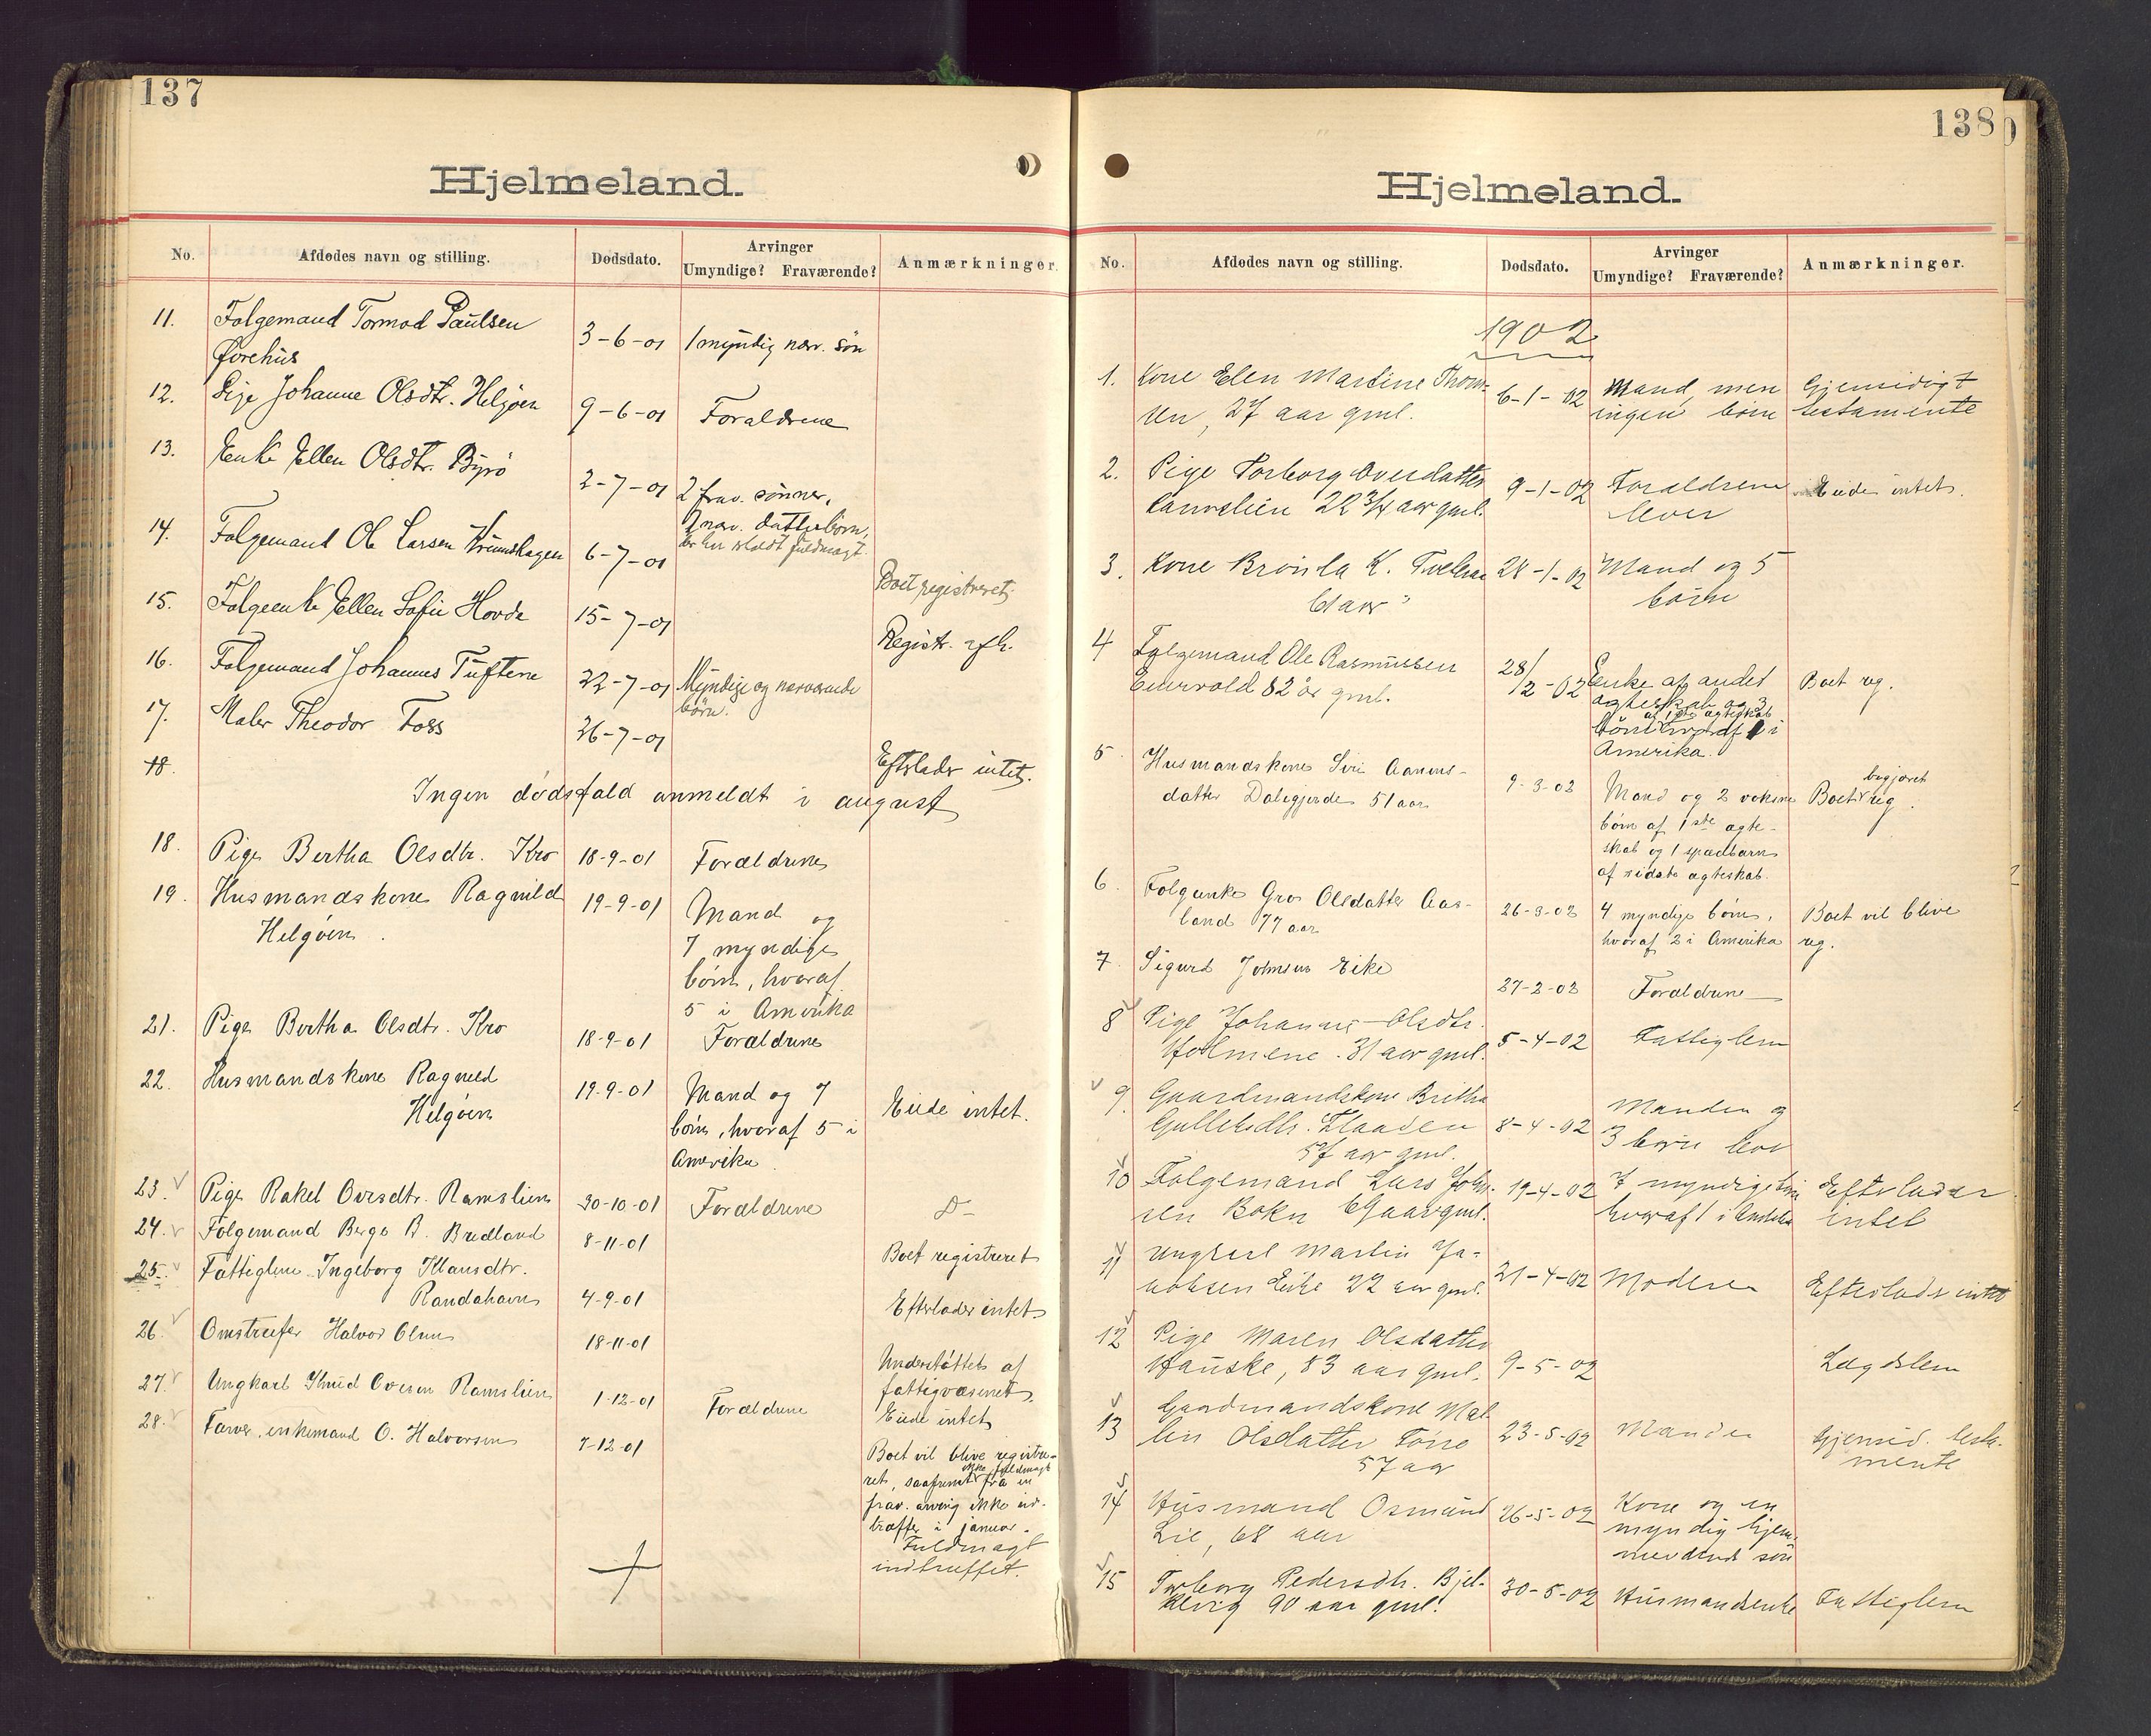 137
Hjelmeland.
No. Afdødes navn og stilling. Dødsdato. Arvinger Umyndige? Fraværende? Anmærkninger.
11. Folgemand Tormod Paulsen
Øvrehus 3-6-01 1 myndig nærv. søn
12. Pige Johanne Olsdtr. Helgøen 9-6-01 Forældrene
13. Enke Ellen Olsdtr. Byrø 2-7-01 2 frav. sønner,
2 nærv. datterbørn,
fuldmagt.
14. Folgemand Ole Larsen 6-7-01
Boet registreret.
15. Folgeenke Ellen Sofie Hovda 15-7-01
Registr. afh.
16. Folgemand Johannes Tuftene 22-7-01 Myndige og nærværende
børn.
17. Maler Theodor Foss 26-7-01
Efterlader intet.
18.
Ingen dødsfald anmeldt i august
18. Pige Bertha Olsdtr. Kro 18-9-01 Forældrene
19. Husmandskone Ragnild
Helgøen. 19-9-01 Mand og
7 myndige
børn, hvoraf
5 i Amerika
21. Pige Bertha Olsdtr. Kro 18-9-01 Forældrene
22. Husmandskone Ragnild
Helgøen 19-9-01 Mand og 7
børn, hvoraf 5 i
Amerika. Eiede intet.
23. Pige Rakel Oversdtr. Ramslien 30-10-01 Forældrene D-
24. Folgemand Berge B. Bredland 8-11-01 Boet registreret
25. Fattiglem Ingeborg Klausdtr.
Randahavn 4-9-01 Efterlader intet
26. Omstreifer Halvor Olsen 18-11-01 Understøttet af
fattigvæsenet.
27. Ungkarl Knud Oversen Ramslien 1-12-01 Forældrene Eiede intet
28. Farver, enkemand O. Halvorsen 7-12-01 Boet vil blive registre-
ret, saafremt ikke fuldmagt fra en
frav. arving ikke ind-
træffer i januar.
Fuldmagt
indtruffet.
138
Hjelmeland.
No. Afdødes navn og stilling. Dødsdato. Arvinger Umyndige? Fraværende? Anmærkninger.
1902
1. Kone Elen Martine Thom-
sen, 27 aar gml. 6-1-02 Mand, men
ingen børn Gjensidigt
testamente
2. Pige Torborg Oversdatter
Ramslien 22 3/4 aar gml. 9-1-02 Forældrene
lever Eiede intet.
3. Kone Brønla K. Tveteraa
61 aar 28-1-02 Mand og 5
børn
4 Folgemand Ole Rasmussen
82 år gml. 28/2-02 Enke af andet
ægteskab og 3
børn af 1ste ægteskab hvoraf 1 i
Amerika. Boet reg.
5 Husmandskone Siri Aanens-
datter Dalegjerde 51 aar 9-3-02 Mand og 2 voksne
børn af 1ste ægte-
skab og 1 spædbarn
af sidste ægteskab. Boet begjæret reg.
6. Folgeenke Gro Olsdatter Aas-
land 77 aar 26-3-02 4 myndige børn,
hvoraf 2 i Amerika Boet vil blive
reg.
7. Sigurd Johnsen Eike 27-2-02 Forældrene
8 Pige Johanne Olsdtr.
Holmene. 31 aar gml. 5-4-02 Fattiglem
9. Gaardmandskone Britha
Gulleksdtr. Fladen
57 aar gml. 8-4-02 Manden og
3 børn lever
10 Folgemand Lars John-
sen Bokn aar gml. 19-4-02 7 myndige børn
hvoraf 1 i Amerika Efterlader
intet
11 Ungkarl Martin Ja-
kobsen Eike 22 aar gml. 21-4-02 Moderen Efterlader intet
12 Pige Maren Olsdatter
Hauske, 83 aar gml. 9-5-02 Lægdslem
13 Gaardmandskone Mal-
lin Olsdatter Tøsse
57 aar 23-5-02 Manden Gjensid. testa-
mente
14 Husmand Osmund
Lie, 68 aar 26-5-02 Kone og en
myndig hjem-
værende søn
15 Torborg Pedersdtr. Bjel-
kevig 90 aar gml. 30-5-02 Husmandsenke Fattiglem